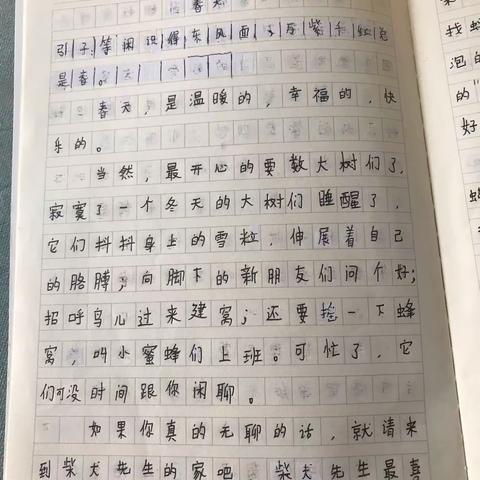 春天
引子：等闲识得东风面，万紫千红总
是春。
春天，是温暖的，幸福的，快
乐的。
当然，最开心的要数大树们了，
寂寞了一个冬天的大树们睡醒了，
它们抖抖身上的雪粒，伸展着自己
的胳膊；向脚下的新朋友们问个好；
招呼鸟儿过来建窝；还要捡一下蜂
窝，叫小蜜蜂们上班。可忙了，它
们可没时间跟你闲聊。
如果你真的无聊的话，就请来
到柴犬先生的家吧 柴犬先生最喜
找蜂
泡的
的
好
蜂